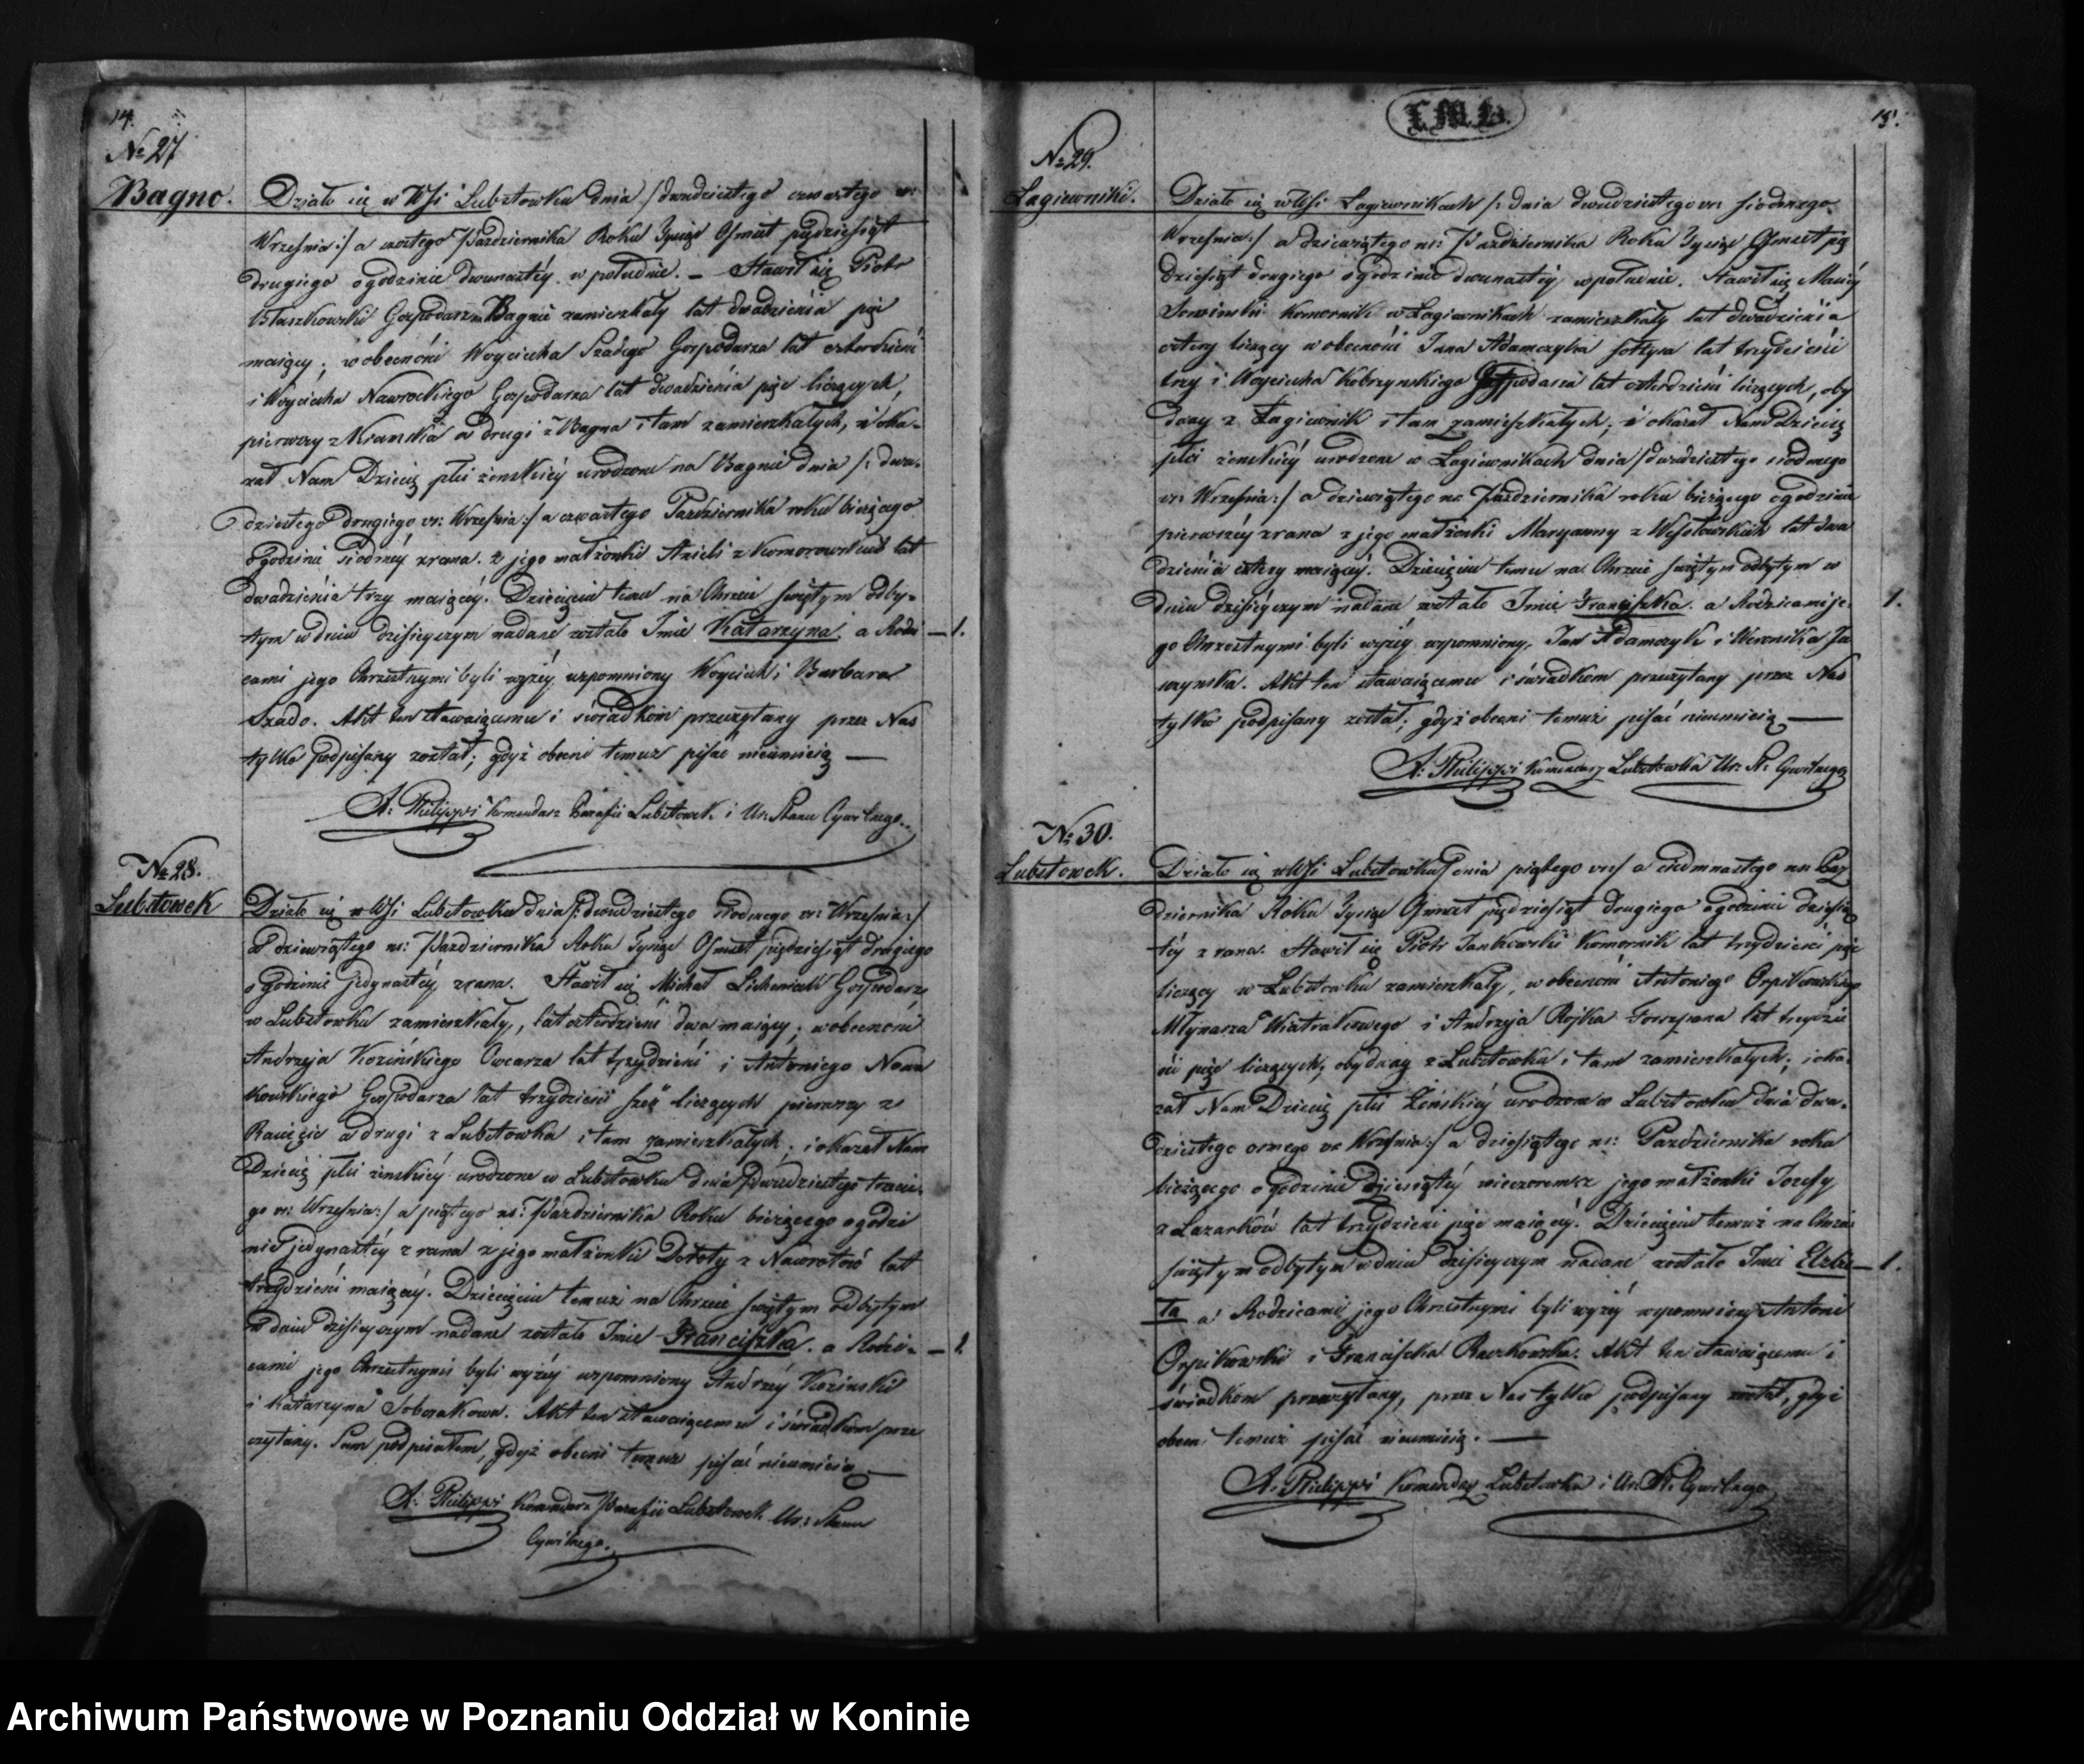 14.
№ 27
Bagno.
Działo się w Wsi Lubstowku dnia /: dwudziestego czwartego vs:
Wrzesnia :/ a szostego Pazdziernika Roku Tysiąc Osmset pędziesiąt
drugiego o godzinie dwunastéy w południe. – Stawił się Piotr
Błaszkowski Gospodarz na Bagnie zamieszkały lat dwadzieścia pięć
maiący; w obecności Woyciecha Szadego Gospodarza lat czterdzieści
i Woyciecha Nawrockiego Gospodarza lat dwadzieścia pięć liczących,
pierwszy z a drugi z Bagna i tam zamieszkałych, i oka-
zał Nam Dziecię płci żenskiéy urodzone na Bagnie dnia /: dwu-
dziestego drugiego vs: Wrzesnia :/ a czwartego Pazdziernika roku bieżącego
o godzinie siodméy zrana. z jego małżonki Anieli z Komorowskich lat
dwadzieścia trzy maiącéy. Dziecięciu temu na Chrzcie świętym odby-
tym w dniu dzisieyszym nadane zostało Imie Katarzyna, a Rodzi – 1.
cami jego Chrzestnymi byli wyżéy wspomniony Woyciech i Barbara
Szado. Akt ten stawaiącemu i świadkom przeczytany przez Nas
tylko podpisany został; gdyż obecni temuż pisać nieumieią —
A: Philippi Komendarz Parafii Lubstowek i Ur: Stanu Cywilnego.
№ 28.
Lubstowek
Działo się w Wsi Lubstowku dnia /: dwudziestego siodmego vs: Wrzesnia :/
a dziewiątego ns: Pazdziernika Roku Tysiąc Osmset pędziesiąt drugiego
o godzinie jedynastéy zrana. Stawił się Michał Gospodarz
w Lubstowku zamieszkały, lat czterdzieści dwa maiący; w obecności
Andrzeja Kozińskiego Owczarza lat trzydzieści i Antoniego Nowa
kowskiego Gospodarza lat trzydzieści sześć liczących pierwszy z
a drugi z Lubstowka i tam zamieszkałych; i okazał Nam
Dziecię płci żenskiéy urodzone w Lubstowku dnia /: dwudziestego trzecie-
go vs: Wrzesnia :/ a piątego ns: Pazdziernika Roku bieżącego o godzi
nie jedynastéy z rana z jego małżonki Doroty z Nawrotów lat
trzydzieści maiącéy. Dziecięciu temuż na Chrzcie świętym odbytym
w dniu dzisieyszym nadane zostało Imie Franciszka. a Rodzi- – 1.
cami jego Chrzestnymi byli wyżéy wspomniony Andrzéy Koziński
i Katarzyna Sobczakowa. Akt ten stawaiącemu i świadkom prze
czytany. Sam podpisałem, gdyż obecni temuż pisać nieumieią —
A: Philippi Komendarz Parafii Lubstowek Ur: Stanu
Cywilnego.
I.M.D.
15.
№ 29.
Łagiewniki.
Działo się w Wsi Łagiewnikach /: dnia dwudziestego vs: siodmego
Wrzesnia :/ a dziewiątego ns: Pazdziernika Roku Tysiąc Osmset pię
dziesiąt drugiego o godzinie dwunastéy w południe. Stawił się Maciéy
Komornik w Łagiewnikach zamieszkały lat dwadzieścia
cztery liczący w obecności Jana Adamczyka sołtysa lat trzydzieści
trzy i Woyciecha Kobrzynskiego Gospodarza lat czterdzieści liczących, oby
dway z Łagiewnik i tam zamieszkałych; i okazał Nam Dziecię
płci żenskiéy urodzone w Łagiewnikach dnia /: dwudziestego siodmego
vs: Wrzesnia :/ a dziewiątego ns Pazdziernika roku bieżącego o godzinie
pierwszéy zrana z jego małżonki Maryanny z Wesołowskich lat dwa
dzieścia cztery maiącéy. Dziecięciu temu na Chrzcie świętym odbytym w
dniu dzisieyszym nadane zostało Imie Franciszka. a Rodzicami je- 1.
go Chrzestnymi byli wyżéy wspomniony, Jan Adamczyk i Weronika
Akt ten stawaiącemu i świadkom przeczytany przez Nas
tylko podpisany został, gdyż obecni temuż pisać nieumieią —
A: Philippi Komendarz Lubstowka Ur: St: Cywilnego
№ 30.
Lubstowek.
Działo się w Wsi Lubstowku /: dnia piątego vs :/ a siedmnastego ns Paz
dziernika Roku Tysiąc Osmset pędziesiąt drugiego o godzinie dziesią
téy z rana. Stawił się Piotr Jankowski Komornik lat trzydzieści pięć
liczący w Lubstowku zamieszkały, w obecności Antoniego Orpikowskiego
Młynarza Wiatrakowego i Andrzeja Rojka lat trzydzie
ści pięć liczących, obydway z Lubstowka i tam zamieszkałych; i oka-
zał Nam Dziecię płci żeńskiéy urodzone w Lubstowku dnia dwu-
dziestego osmego vs Wrzesnia :/ a dziesiątego ns: Pazdziernika roku
bieżącego o godzinie dziesiątéy wieczorem z jego małżonki Jozefy
z Lazarków lat trzydzieści pięć maiącéy. Dziecięciu temuż na Chrzcie
świętym odbytym w dniu dzisieyszym nadane zostało Imie Elzbie – 1.
ta a Rodzicami jego Chrzestnymi byli wyżéy wspomniony Antoni
Orpikowski i Franciszka Raczkowska. Akt ten stawaiącemu i
świadkom przeczytany, przez Nas tylko podpisany został, gdyż
obecni temuż pisać nieumieią. —
A: Philippi Komendarz Lubstowka i Ur: St: Cywilnego
Archiwum Państwowe w Poznaniu Oddział w Koninie